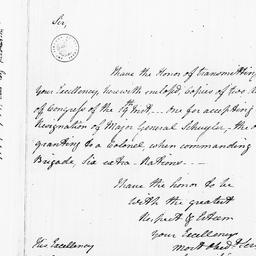 Sir,
I have the Honor of transmitting
Your Excellency, herewith inclosed, Copies of two A
of Congress of the 19th Inst. ... One for accepting
Resignation of Major General Schuyler, the o
granting to a Colonel when commanding
Brigade, Six extra Rations. --
I have the honor to be
With the greatest
Respect & Esteem
Your Excellency
most Obedt Ser
His Excellency